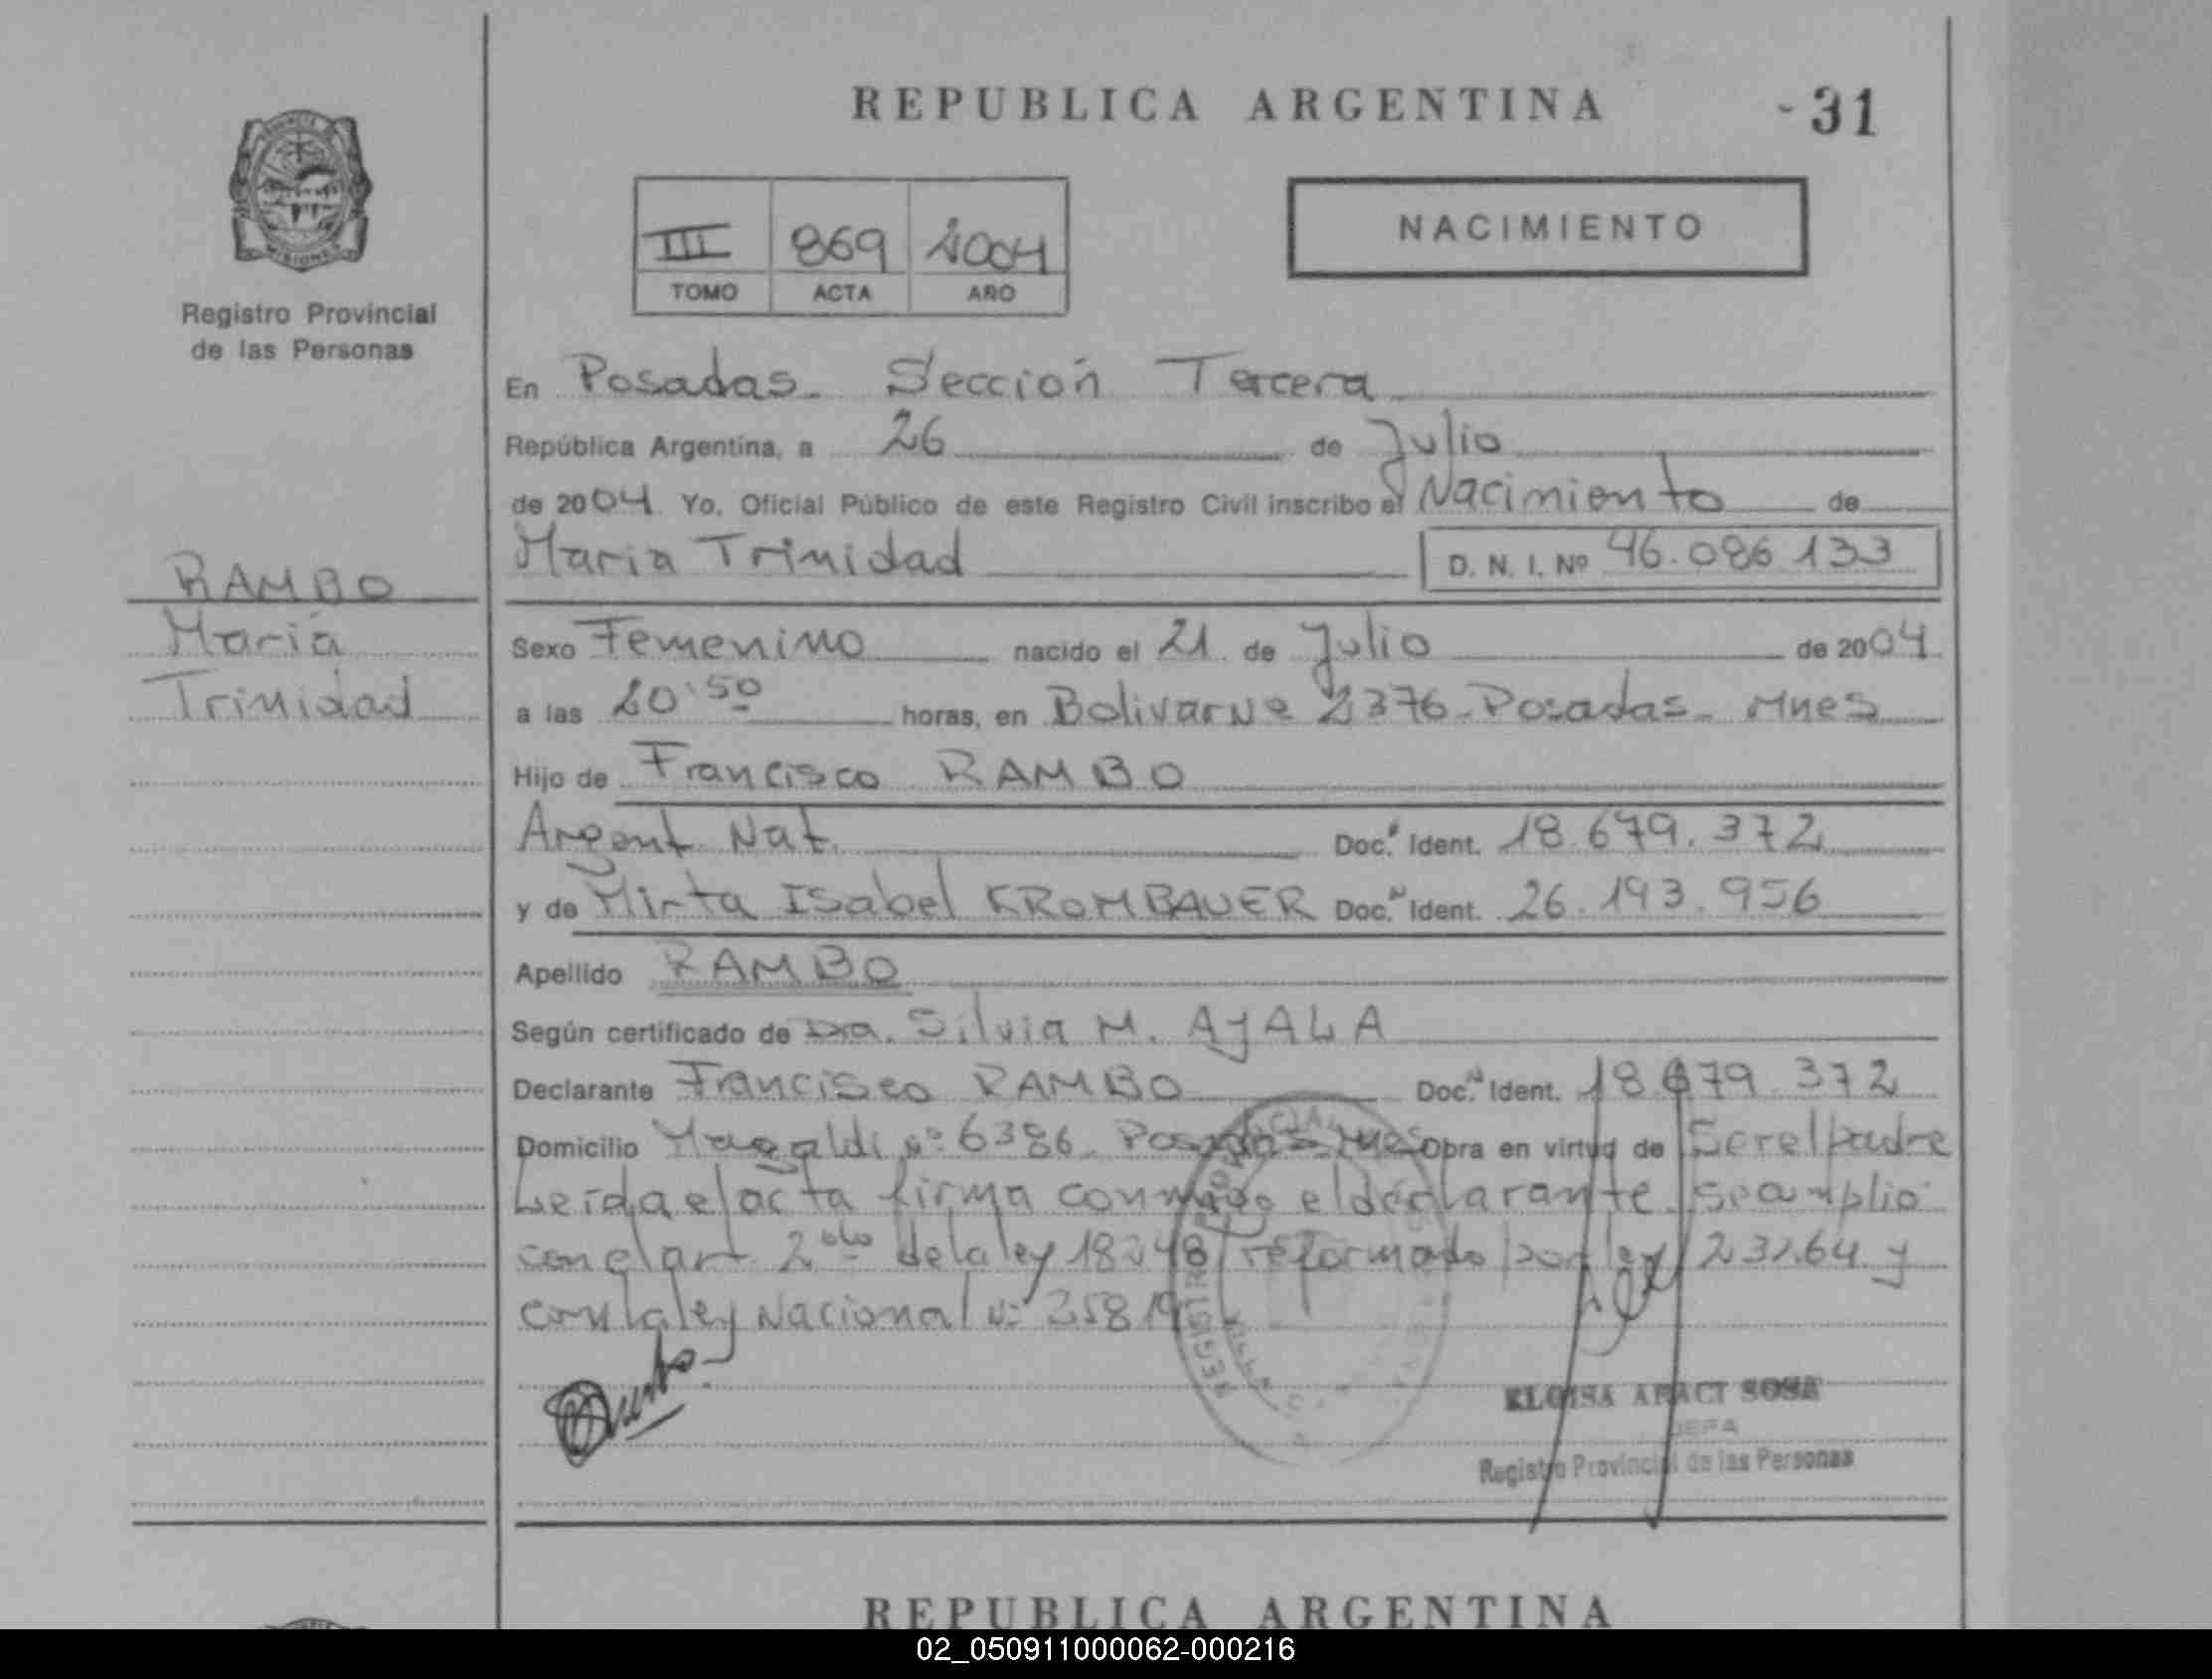 REPUBLICA ARGENTINA
- 31
III 869 2004
TOMO ACTA AÑO
NACIMIENTO
Registro Provincial
de las Personas
RAMBO
María
Trinidad
En Posadas. Sección Tercera
República Argentina, a 26 de Julio
de 2004 Yo, Oficial Público de este Registro Civil inscribo el Nacimiento de
Maria Trinidad D. N. I. Nº 46.086 133
Sexo Femenino nacido el 21 de Julio de 2004
a las 20:50 horas, en Bolivar Nº 2376. Posadas. Mnes
Hijo de Francisco RAMBO
Argent. Nat. Doc. Ident. 18.679.372
y de Mirta Isabel KROMBAUER Doc. Ident. 26.193.956
Apellido RAMBO
Según certificado de Dra. Silvia M. AYALA
Declarante Francisco RAMBO Doc. Ident. 18679.372
Domicilio Magaldi nº 6386. Posadas Mnes Obra en virtud de Ser el padre
Leida el acta firma conmigo el declarante. se amplio
con el art 2 de la ley 18248 reformado por ley 23264 y
con la ley Nacional nº 25819
ELOISA ARACI SOSA
JEFA
Registro Provincial de las Personas
REPUBLICA ARGENTINA
02_050911000062-000216